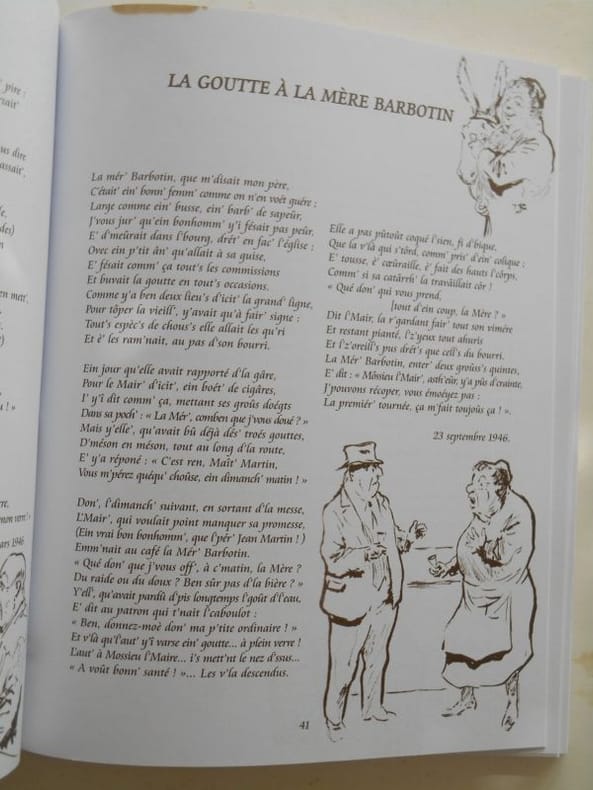 pire :
rtait'
us dire
assait,
le,
des)
n
en mett'.
u ! »
rre,
mon verr'! »
ars 1946
LA GOUTTE À LA MÈRE BARBOTIN
La mér' Barbotin, que m'disait mon père,
C'était' ein' bonn' femm' comme on n'en voét guére :
Large comme ein' busse, ein' barb' de sapeûr,
J'vous jur' qu'ein bonhomm' y'i fésait pas peûr.
E' d'meûrait dans l'bourg, drét' en fac' l'église ;
Ovec ein p'tit ân' qu'allait à sa guise,
E' fésait comm' ça tout's les commissions
Et buvait la goutte en tout's occasions.
Comme y'a ben deux lieu's d'icit' la grand' ligne,
Pour tôper la vieill', y'avait qu'à fair' signe :
Tout's espèc's de chous's elle allait les qu'ri
Et è' les ram'nait, au pas d'son bourri.
Ein jour qu'elle avait rapporté d'la gâre,
Pour le Mair' d'icit', ein boét' de cigâres,
I' y'i dit comm' ça, mettant ses groûs doégts
Dans sa poch' : « La Mér', comben que j'vous doué ? »
Mais y'elle', qu'avait bû déjà dés' troés gouttes,
D'méson en méson, tout au long d'la route,
E' y'a réponé : « C'est ren, Maît' Martin,
Vous m'pérez quéqu' choûse, ein dimanch' matin ! »
Don', l'dimanch' suivant, en sortant d'la messe,
L'Mair', qui voulait point manquer sa promesse,
(Ein vrai bon bonhomm', que l'pér' Jean Martin ! )
Emm'nait au café la Mér' Barbotin.
« Qué don' que j'vous off', à c'matin, la Mère ?
Du raide ou du doux ? Ben sûr pas d'la bière ? »
Y'ell', qu'avait pardû d'pis longtemps l'goût d'l'eau,
E' dit au patron qui t'nait l'caboulot :
« Ben, donnez-moè don' ma p'tite ordinaire ! »
Et v'là qu'l'aut' y'i varse ein' goutte... à plein verre !
L'aut' à Mossieu l'Maire... i's mett'nt le nez d'ssus...
« A voût bonn' santé ! »... Les v'la descendus.
Elle a pas pûtoût coqué l'sien, fi d'bique,
Que la v'là qui s'tôrd, comm' pris' d'ein' colique ;
E' tousse, è' cœûraille, è' fait des hauts l'côrps,
Comm' si sa catârrh' la travâillait côr !
« Qué don' qui vous prend,
[tout d'ein coup, la Mère ? »
Dit l'Mair, la r'gardant fair' tout son vimére
Et restant pianté, l'z'yeux tout ahuris
Et l'z'oreill's pus drét's que cell's du bourri.
La Mér' Barbotin, enter' deux groûss's quintes,
E' dit : « Môssieu l'Mair', asth'eûr, y'a pûs d'crainte,
J'pouvons récoper, vous émoéyez pas :
La premiér' tournée, ça m'fait toujoûs ça ! ».
23 septembre 1946.
41